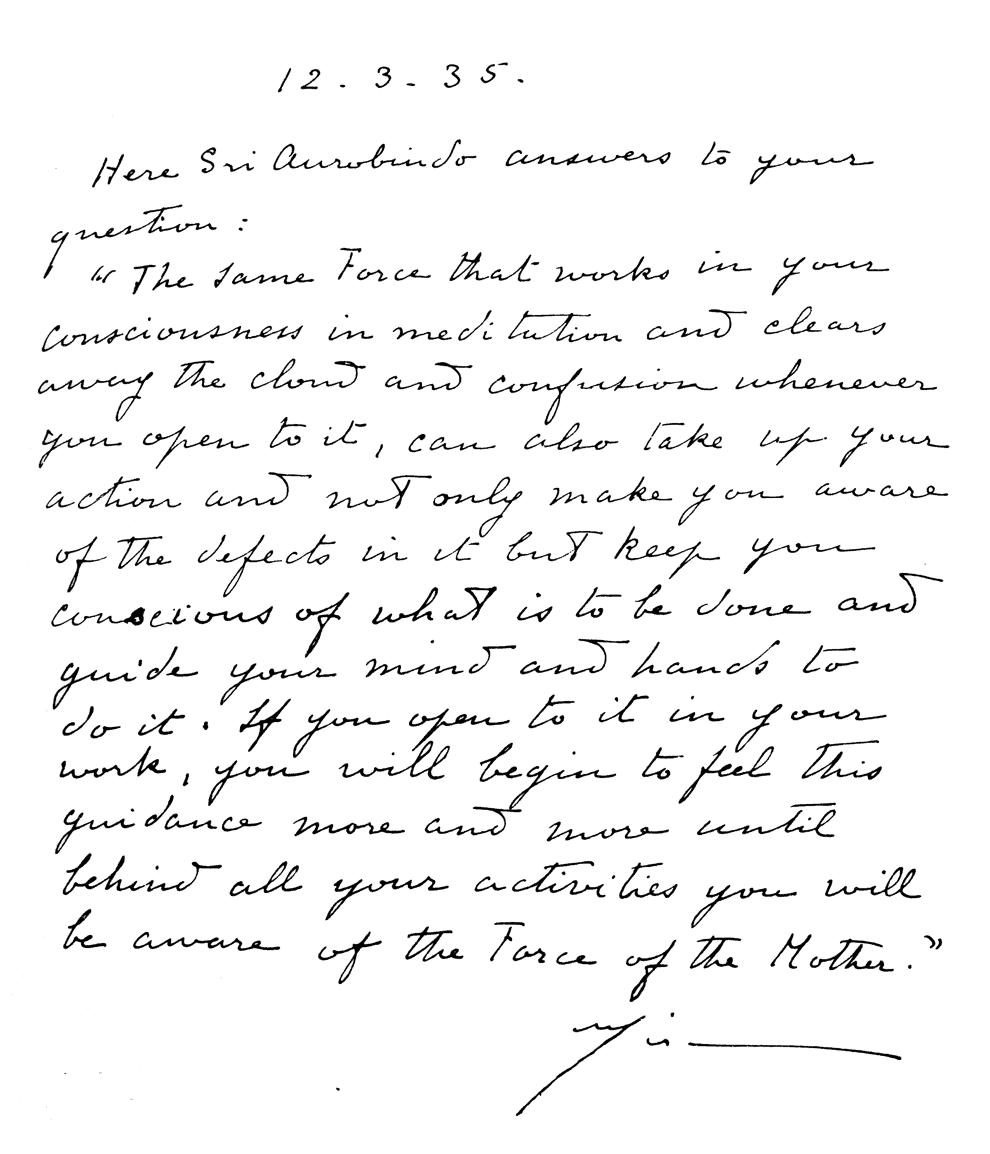 12.3.35.
Here Sri Aurobindo answers to your
question :
“The same Force that works in your
consciousness in meditation and clears
away the cloud and confusion whenever
you open to it, can also take up your
action and not only make you aware
of the defects in it but keep you
conscious of what is to be done and
guide your mind and hands to
do it. If you open to it in your
work, you will begin to feel this
guidance more and more until
behind all your activities you will
be aware of the Force of the Mother.”